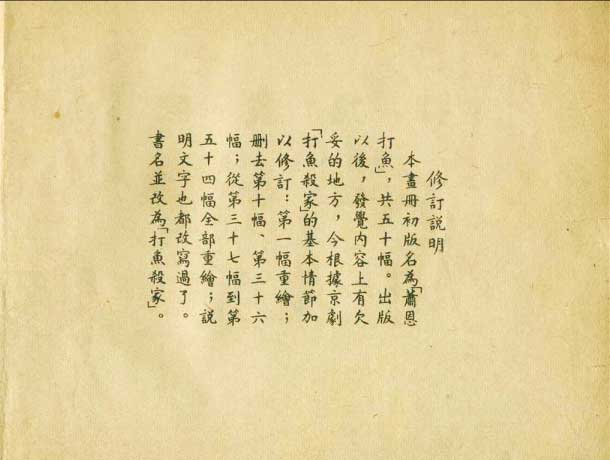 修訂說明
本畫册初版名為「蕭恩
打魚」，共五十幅。出版
以後，發覺內容上有欠
妥的地方，今根據京劇
「打魚殺家」的基本情節加
以修訂：第一幅重繪；
删去第十幅、第三十六
幅；從第三十七幅到第
五十四幅全部重繪；說
明文字也都改寫過了。
書名並改為「打魚殺家」。